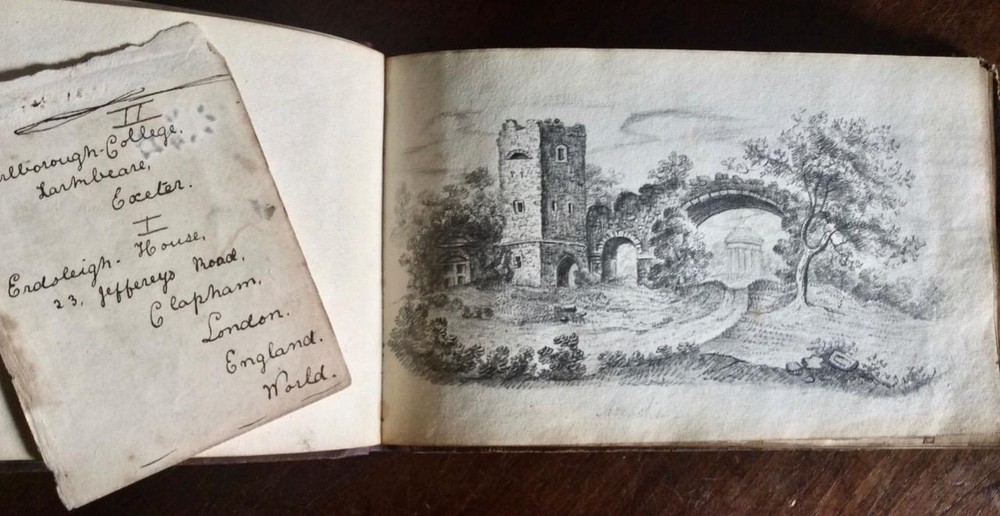 II
rlborough-College.
Larmbeare,
Exeter.
I
Erdsleigh-House,
23, Jeffereys Road,
Clapham,
London.
England.
World.